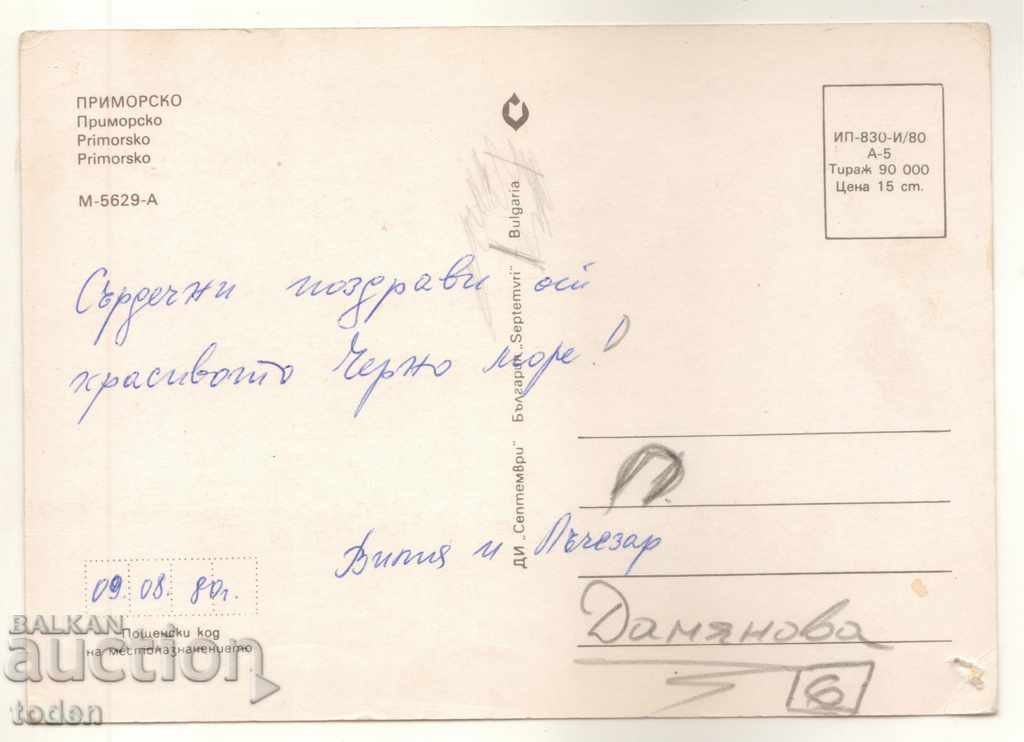 ПРИМОРСКО
Приморско
Primorsko
Primorsko
М-5629-А
ИП-830-И/80
А-5
Тираж 90 000
Цена 15 ст.
Сърдечни поздрави от
красивото Черно море!
и Лъчезар
09. 08. 80г.
Пощенски код
на местоназначението
ДИ „Септември" България „Septemvri" Bulgaria
П
Дамянова
6
BALKAN
auction
toden